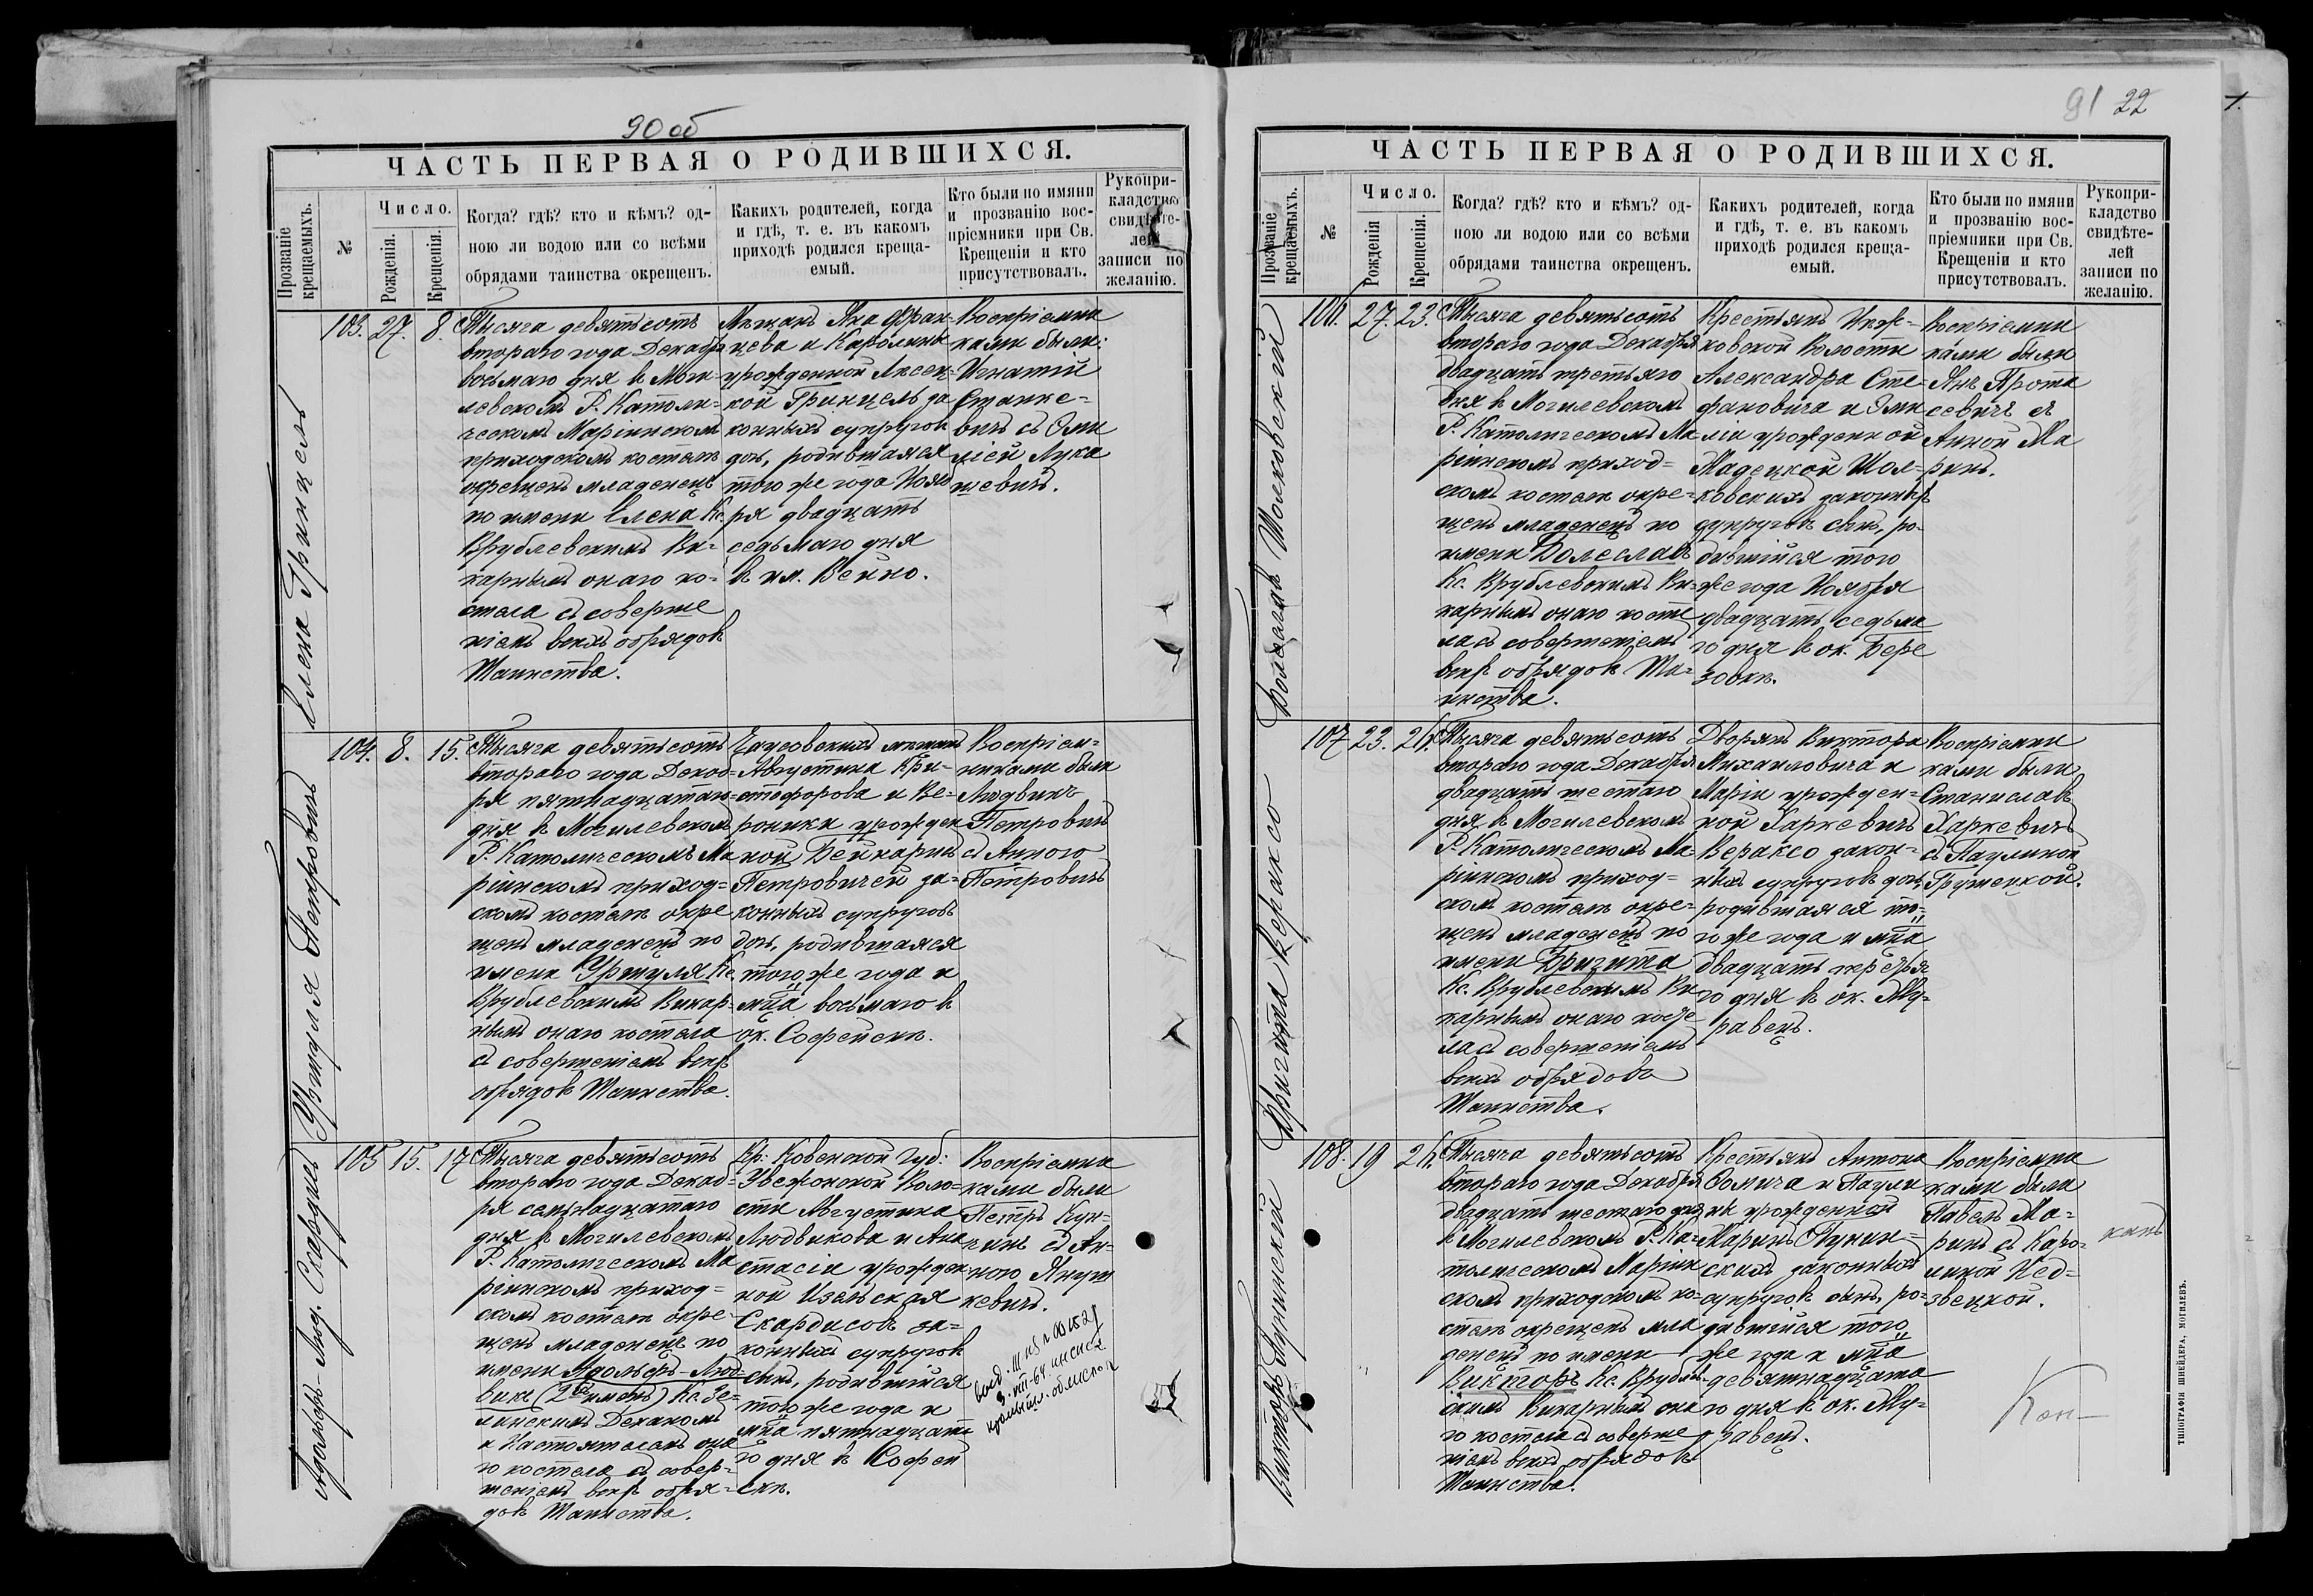 90 об
ЧАСТЬ ПЕРВАЯ О РОДИВШИХСЯ.
Прозваніе крещаемыхъ.
№
Число.
Рожденія.
Крещенія.
Когда? гдѣ? кто и кѣмъ? од-
ною ли водою или со всѣми
обрядами таинства окрещенъ.
Какихъ родителей, когда
и гдѣ, т. е. въ какомъ
приходѣ родился креща-
емый.
Кто были по имяни
и прозванію вос-
пріемники при Св.
Крещеніи и кто
присутствовалъ.
Рукопри-
кладство
свидѣте-
лей
записи по
желанію.
Елена Гринцель
103. 27. 8.
Тысяча девятьсотъ
втораго года Декабря
восьмаго дня въ Моги-
левскомъ Р. Католи-
ческомъ Маріинскомъ
приходскомъ костелѣ
окрещенъ младенецъ
по имени Елена Кс.
Врублевскимъ Ви-
карнымъ онаго ко-
стела съ соверше
ніемъ всѣхъ обрядовъ
Таинства.
Мѣщанъ Яна Фран-
цева и Каролины
урожденной Лисец-
кой Гринцель за
конныхъ супруговъ
дочь, родившаяся
того же года Нояб
ря двадцать
седьмаго дня
въ им. Вейно.
Воспріемни
ками были:
Игнатій
Станке-
вичъ съ Эми
ліей Лука
шевичъ.
Уршуля Петровичъ
104. 8. 15.
Тысяча девятьсотъ
втораго года Декаб-
ря пятнадцатаго
дня въ Могилевскомъ
Р. Католическомъ Ма
ріинскомъ приход-
скомъ костелѣ окре
щенъ младенецъ по
имени Уршуля Кс.
Врублевскимъ Викар-
нымъ онаго костела
съ совершеніемъ всѣхъ
обрядовъ Таинства.
Чаусовскихъ мѣщанъ
Августина Кри-
стофорова и Ве-
роники урожден
ной Бейнаринъ
Петровичей за-
конныхъ супруговъ
дочь, родившаяся
того же года и
мѣца восьмаго въ
ок. Софейскѣ.
Воспріем-
никами были
Людвикъ
Петровичъ
съ Анною
Петровичъ
Адольфъ-Люд. Скардисъ
105 15. 17
Тысяча девятьсотъ
втораго года Декаб-
ря семнадцатаго
дня въ Могилевскомъ
Р. Католическомъ Ма
ріинскомъ приход-
скомъ костелѣ окре-
щенъ младенецъ по
имени Адольфъ-Люд-
викъ (2хъ именъ) Кс. Зе-
линскимъ Деканомъ
и Настоятелемъ она
го костела съ совер-
шеніемъ всѣхъ обря-
довъ Таинства.
Кр: Ковенской Губ:
Увежонской Воло-
сти Августина
Людвикова и Ана
стасіи урожден-
ной Изельская
Скардисовъ за-
конныхъ супруговъ
сынъ, родившійся
того же года и
мѣца пятнадцата
го дня въ Софей
скѣ.
Воспріемни
ками были
Петръ Кун-
чинъ съ Ан-
ною Януш
кевичъ.
91 22
ЧАСТЬ ПЕРВАЯ О РОДИВШИХСЯ.
Прозваніе крещаемыхъ.
№
Число.
Рожденія
Крещенія.
Когда? гдѣ? кто и кѣмъ? од-
ною ли водою или со всѣми
обрядами таинства окрещенъ.
Какихъ родителей, когда
и гдѣ, т. е. въ какомъ
приходѣ родился креща-
емый.
Кто были по имяни
и прозванію вос-
пріемники при Св.
Крещеніи и кто
присутствовалъ.
Рукопри-
кладство
свидѣте-
лей
записи по
желанію.
Болеславъ Шолковскій
106. 27. 23.
Тысяча девятьсотъ
втораго года Декабря
двадцать третьяго
дня въ Могилевскомъ
Р. Католическомъ Ма
ріинскомъ приход-
скомъ костелѣ окре-
щенъ младенецъ по
имени Болеславъ
Кс. Врублевскимъ Ви-
карнымъ онаго косте
ла съ совершеніемъ
всѣхъ обрядовъ Та-
инства.
Крестьянъ
ковской Волости
Александра Сте-
фановича и Эми
ліи урожденной
Мадецкой Шол-
ковскихъ законныхъ
супруговъ сынъ, ро-
дившійся того
же года Ноября
двадцать седьма
го дня въ ок. Бере
зовкѣ.
Воспріемни
ками были
Янъ Прота
севичъ съ
Анной Ма
ринъ.
Бригита Вераксо
107 23. 26.
Тысяча девятьсотъ
втораго года Декабря
двадцать шестаго
дня въ Могилевскомъ
Р. Католическомъ Ма-
ріинскомъ приход-
скомъ костелѣ окре-
щенъ младенецъ по
имени Бригита
Кс. Врублевскимъ Ви
карнымъ онаго косте
ла съ совершеніемъ
всѣхъ обрядовъ
Таинства.
Дворянъ Виктора
Михаиловича и
Маріи урожден-
ной Харкевичъ
Вераксо закон-
ныхъ супруговъ дочь,
родившаяся то-
го же года и мѣца
двадцать третья
го дня въ ок. Му-
равецъ.
Воспріемни
ками были
Станиславъ
Харкевичъ
съ Паулиной
Грушецкой.
Викторъ Пунинскій
108. 19 26.
Тысяча девятьсотъ
втораго года Декабря
двадцать шестаго дня
въ Могилевскомъ Р. Ка-
толическомъ Маріин
скомъ приходскомъ ко-
стелѣ окрещенъ мла
денецъ по имени
Викторъ Кс. Врублев-
скимъ Викарнымъ она
го костела съ соверше
ніемъ всѣхъ обрядовъ
Таинства.
Крестьянъ Антона
Ѳомича и Паули
ны урожденной
Маринъ Пунин-
скихъ законныхъ
супруговъ сынъ, ро-
дившійся того
же года и мѣца
девятнадцата
го дня въ ок. Му-
равецъ.
Воспріемни
ками были
Павелъ Ма-
ринъ съ Каро-
линой Нед-
звецкой.
Кон-
ТИПОГРАФІЯ ШНЕЙДЕРА, МОГИЛЕВЪ.